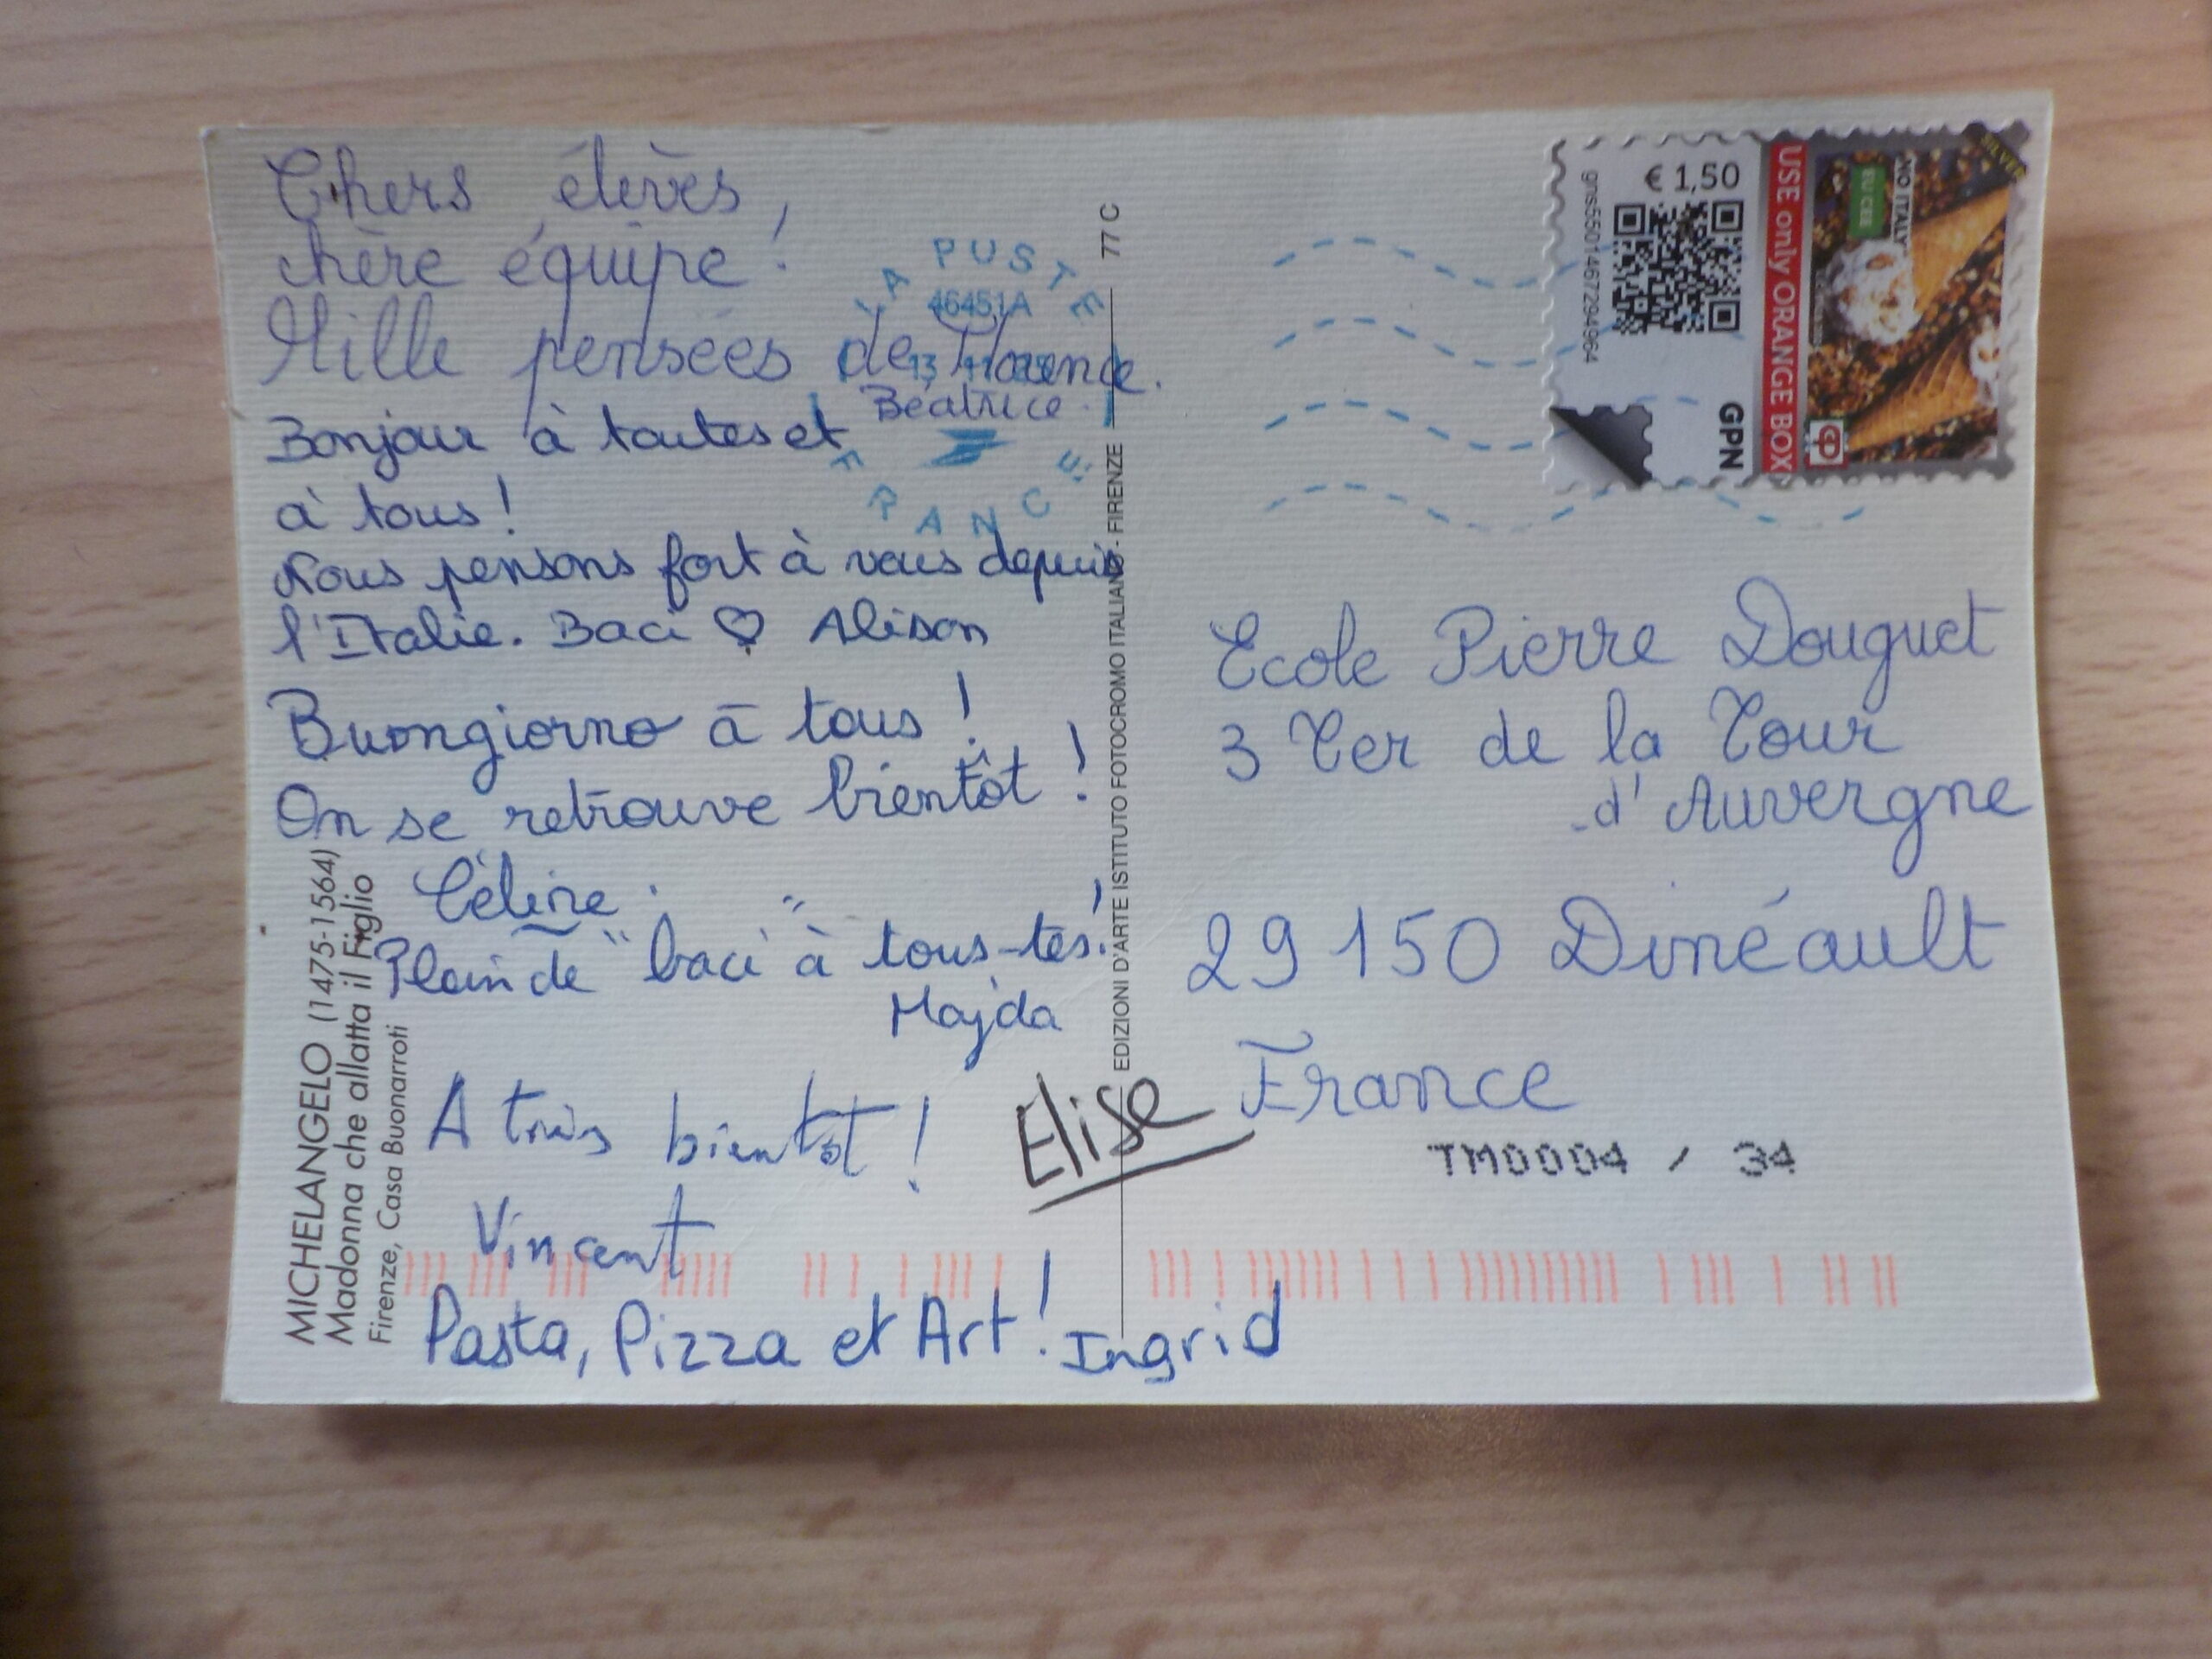 Chers élèves,
chère équipe !
Mille pensées de Florence.
Béatrice.
Bonjour à toutes et
à tous !
Nous pensons fort à vous depuis
l'Italie. Baci ♡ Alison
Buongiorno à tous !
On se retrouve bientôt !
Céline.
Plein de "baci" à tous-tes !
Majda
A très bientôt !
Vincent
Elise
Pasta, Pizza et Art ! Ingrid
MICHELANGELO (1475-1564)
Madonna che allatta il Figlio
Firenze, Casa Buonarroti
EDIZIONI D'ARTE ISTITUTO FOTOCROMO ITALIANO - FIRENZE
77 C
LA POSTE
46451A
FRANCE
€ 1,50
gns5501467294964
GPN
USE only ORANGE BOX
NO ITALY
EU CEE
SILVER
Ecole Pierre Douguet
3 Ter de la Tour
d'Auvergne
29 150 Dinéault
France
TM0004 / 34